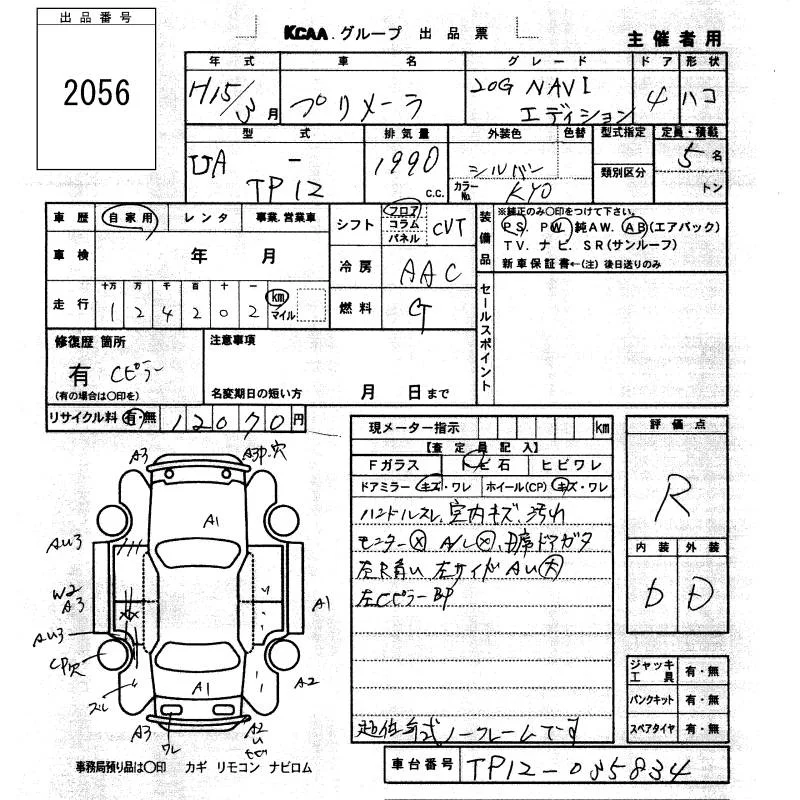 出品番号
2056
KCAA.グループ 出品票
主催者用
年式 車名 グレード ドア 形状
H15/3月 プリメーラ 20G NAVI エディション 4 ハコ
型式 排気量 外装色 色替 型式指定 定員・積載
UA - TP12 1990 c.c. シルバー カラーNo. KY0 類別区分 5名 トン
車歴 自家用 レンタ 事業.営業車
シフト フロア コラム パネル CVT
装備品 ※純正のみ○印をつけて下さい。
PS. PW. 純AW. AB(エアバッグ)
TV. ナビ. SR(サンルーフ)
新車保証書←(注)後日送りのみ
車検 年 月
冷房 AAC
走行 十万 万 千 百 十 一
1 2 4 2 0 2 km マイル
燃料 G
セールスポイント
修復歴 箇所
有 Cピラー
(有の場合は○印を)
注意事項
名変期日の短い方 月 日まで
リサイクル料 有・無 12070円
現メーター指示 km
【査定員記入】
Fガラス トビ石 ヒビワレ
ドアミラー キズ・ワレ ホイール(CP) キズ・ワレ
ハンドルスレ、室内キズ、汚れ
モニター× A/L× 、 席ドアガタ
左R角い 左サイドAU大
左CピラーBP
年式 ノークレームです
評価点
R
内装 外装
D D
ジャッキ工具 有・無
パンクキット 有・無
スペアタイヤ 有・無
A3 A3P.穴
A1
AU3
W2
A3
A1
AU3
CP穴
スレ
A1
A2
A3
ワレ
A2
事務局預り品は○印 カギ リモコン ナビロム
車台番号 TP12-035834